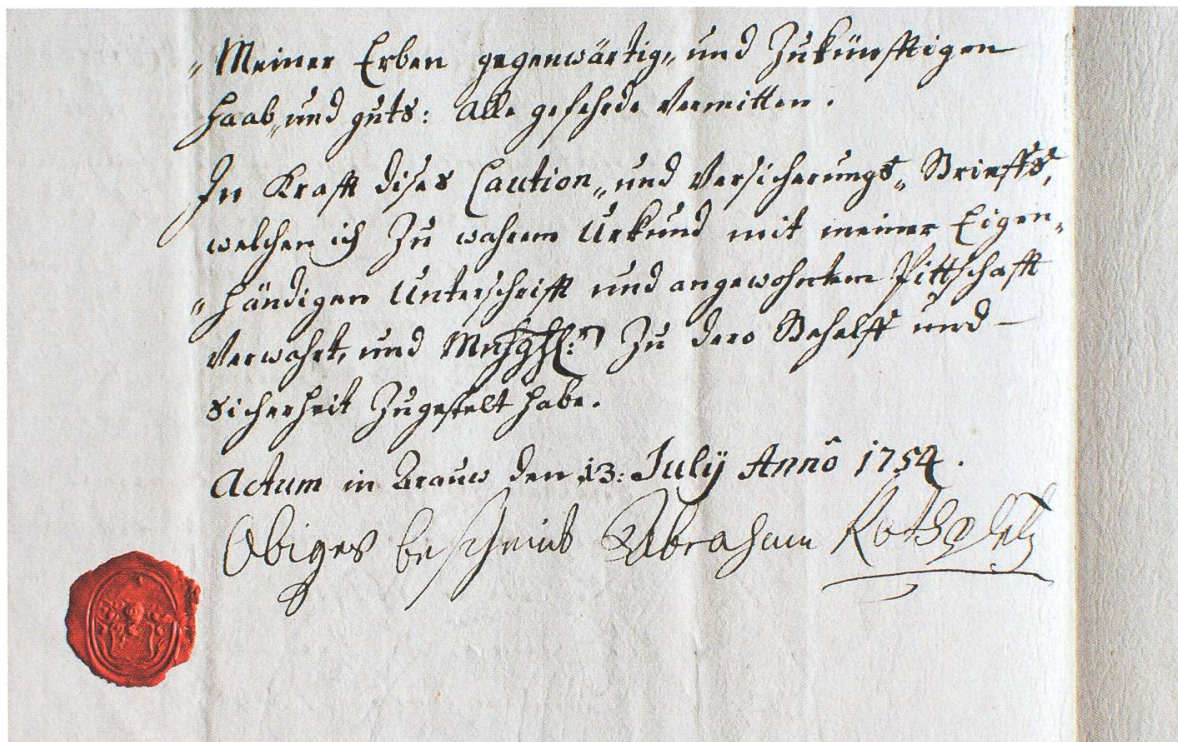 „Meiner Erben gegenwärtig„ und Zukünfftigen
Haab„ und guts: Alle gefehrde Vermitten.
In Krafft dises Caution„ und Versicherungs„ Brieffs,
welchen ich Zu wahrem Urkund mit meiner Eigen„
„händigen Unterschrifft und angewohntem Pittschafft
Verwahrt, und Zu dero Behelff und –
Sicherheit Zugestelt habe.
Actum in den 13: Julÿ Annô 1754.
Obiges bescheint Abraham Rothpletz